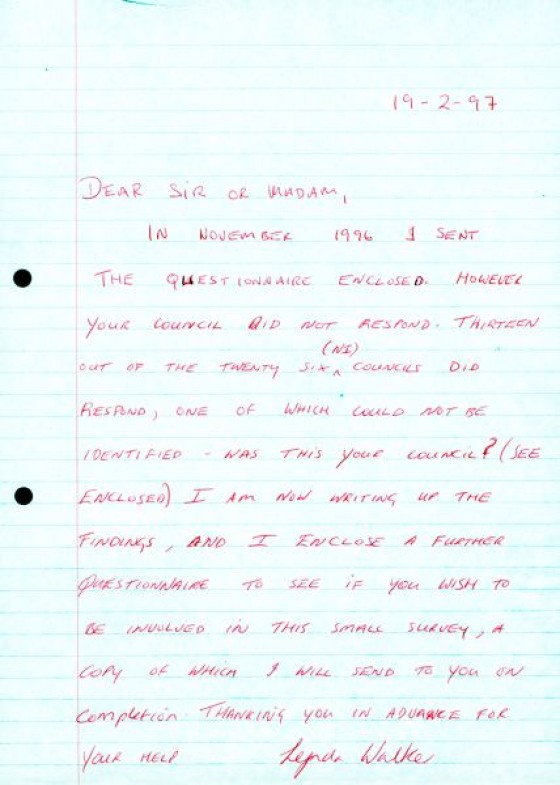 19-2-97
DEAR SIR OR MADAM,
IN NOVEMBER 1996 I SENT
THE QUESTIONNAIRE ENCLOSED. HOWEVER
YOUR COUNCIL DID NOT RESPOND. THIRTEEN
(NI)
OUT OF THE TWENTY SIX ^ COUNCILS DID
RESPOND, ONE OF WHICH COULD NOT BE
IDENTIFIED - WAS THIS YOUR COUNCIL? (SEE
ENCLOSED) I AM NOW WRITING UP THE
FINDINGS, AND I ENCLOSE A FURTHER
QUESTIONNAIRE TO SEE IF YOU WISH TO
BE INVOLVED IN THIS SMALL SURVEY, A
COPY OF WHICH I WILL SEND TO YOU ON
COMPLETION. THANKING YOU IN ADVANCE FOR
YOUR HELP Lynda Walker